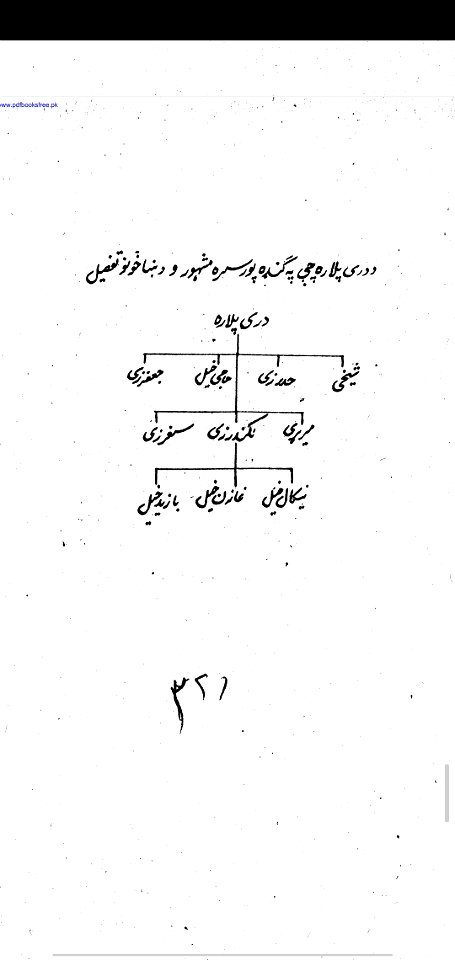 www.pdfbooksfree.pk
د دری پلاره چی په گنډه پور سره مشهور و د ښاخونو تفصیل
دری پلاره
شیخی حدرزی حاجی خیل جعفرزی
میرزی سکندرزی سنورزی
نیکال خیل غازن خیل بازید خیل
۳۲۱